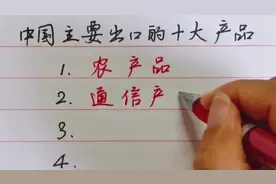 中国主要出口的十大产品
1. 农产品
2. 通信产
3.
4.